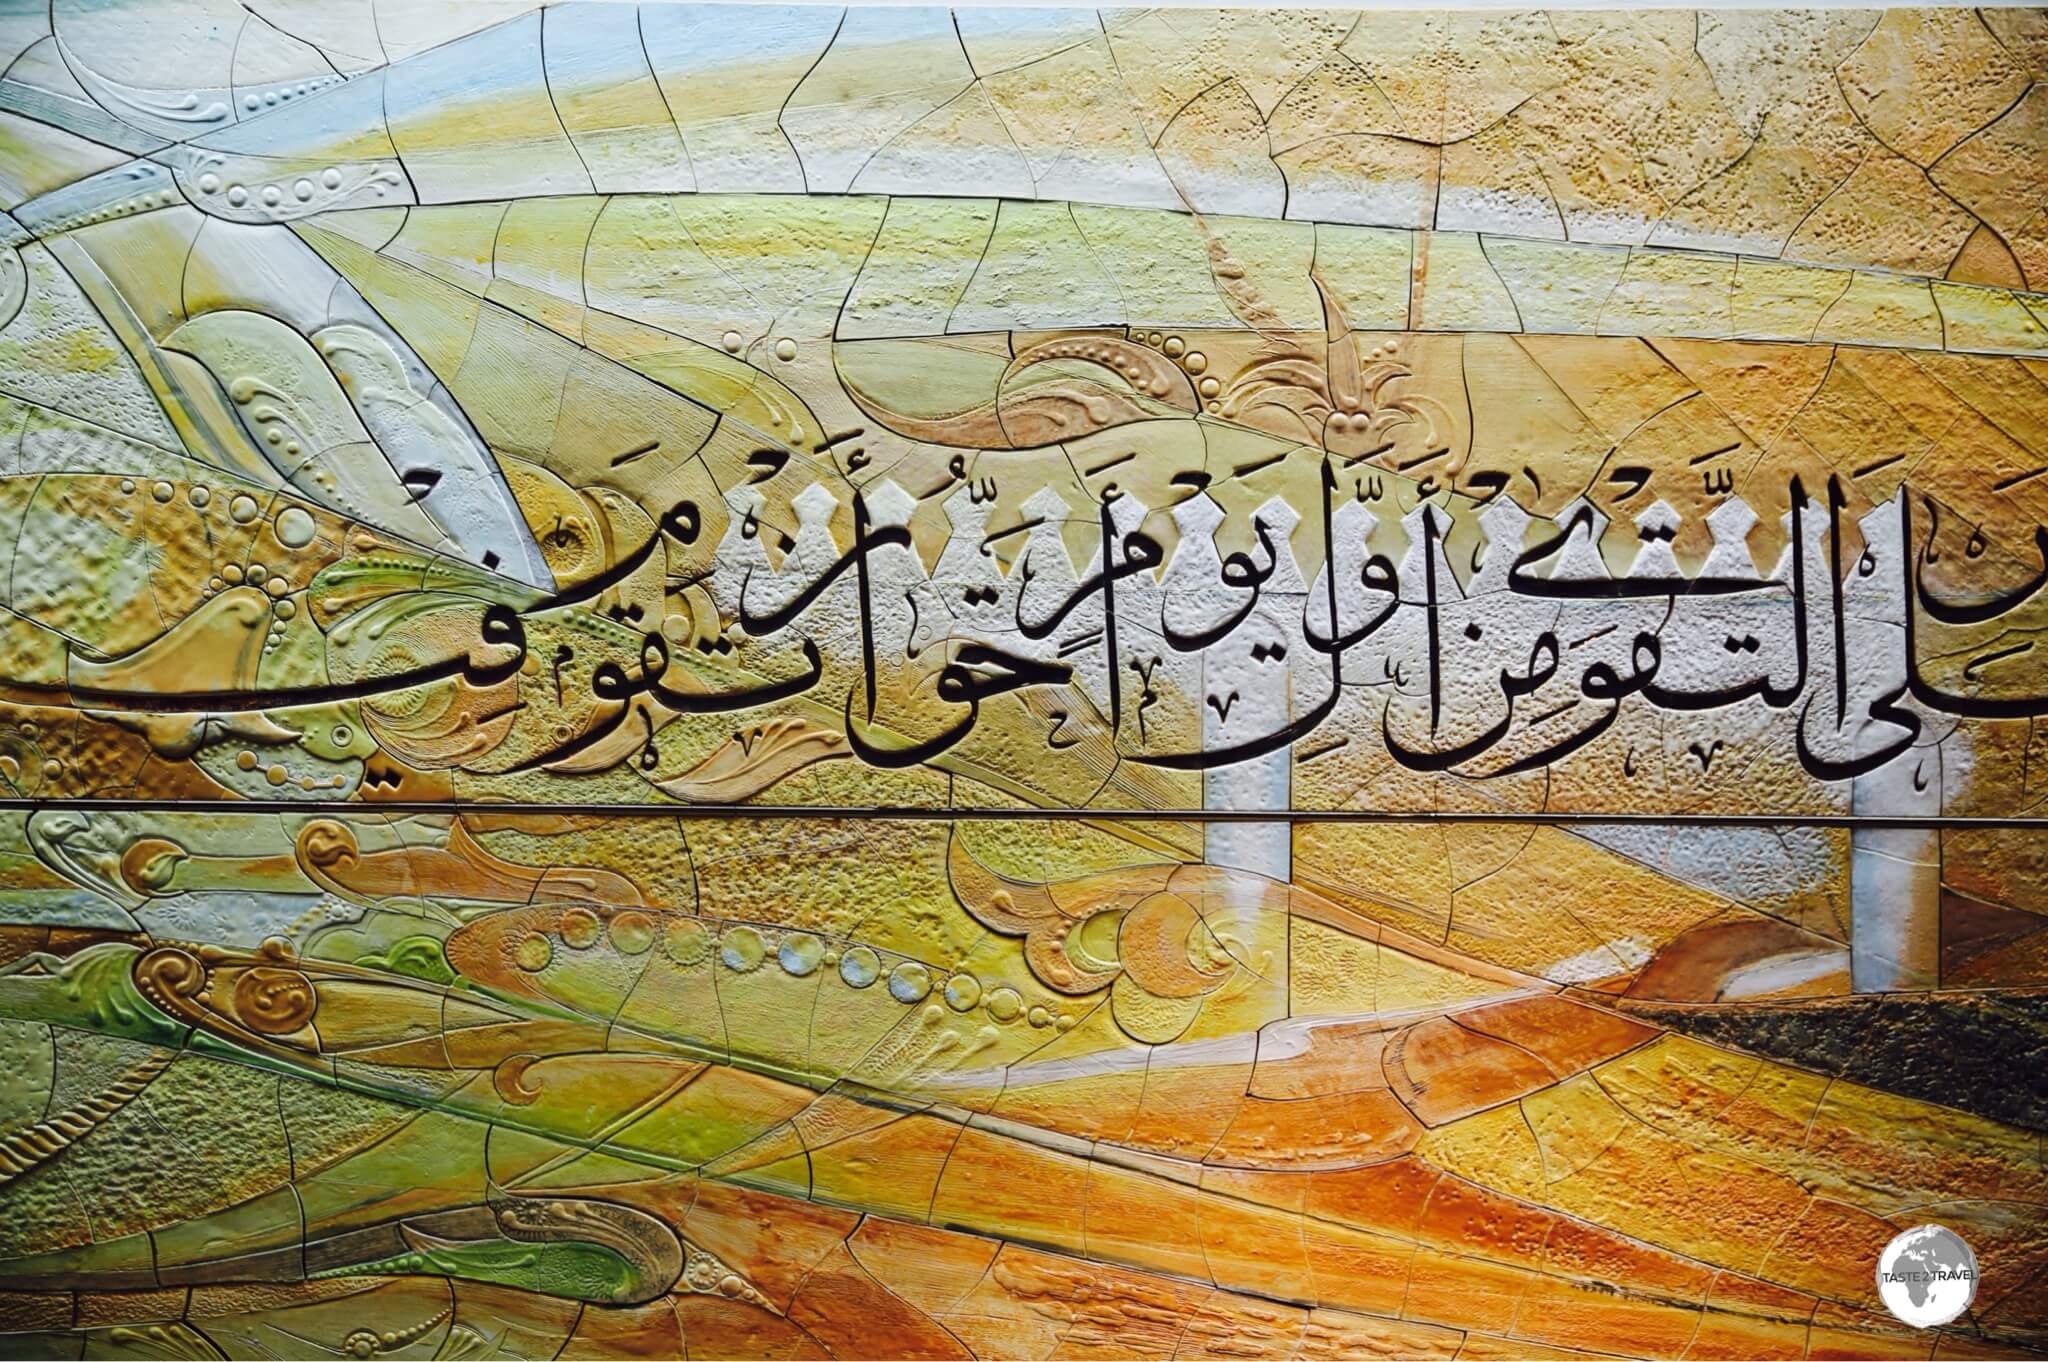 عَلَى التَّقْوَى مِنْ أَوَّلِ يَوْمٍ أَحَقُّ أَنْ تَقُومَ فِي
TASTE2TRAVEL